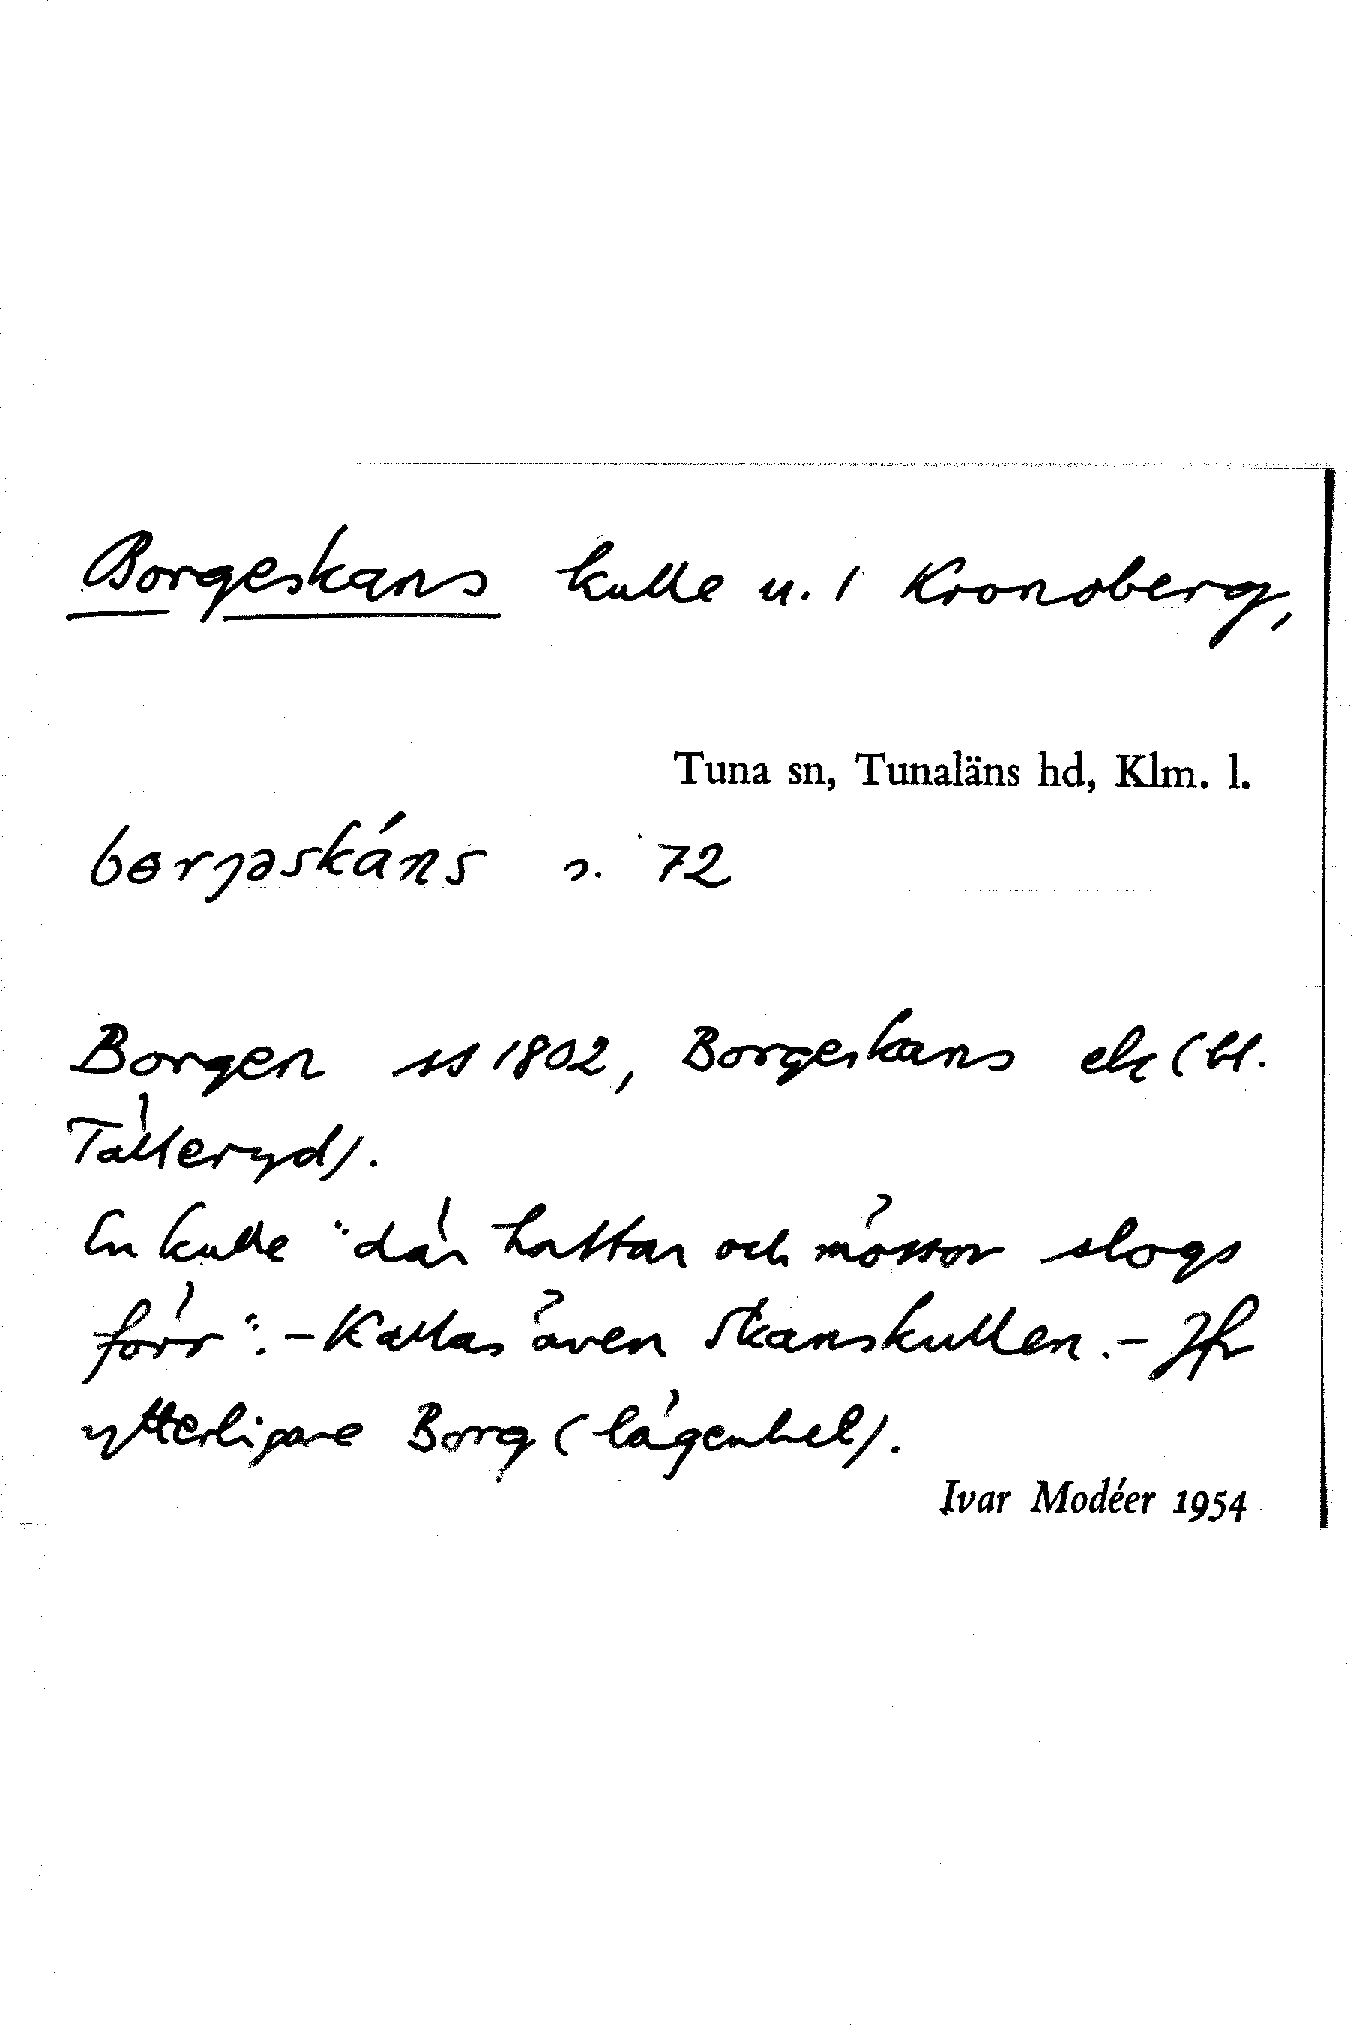 Borgeskans kulle u. 1 Kronoberg,
Tuna sn, Tunaläns hd, Klm. l.
bɵrjəskáns s. 72
Borgen ss 1802, Borgeskans ek (bl.
Tälleryd).
En kulle "där hattar och mössor slogs
förr". – Kallas även Skanskullen. – Jfr
ytterligare Borg (lägenhet).
Ivar Modéer 1954